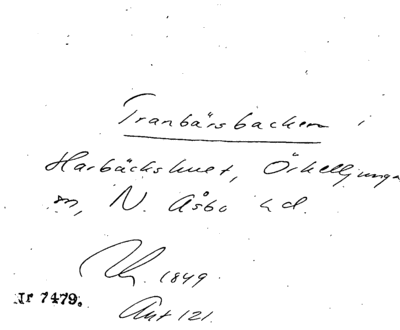 Tranbärsbacken i
Harbäckshult, Örkelljunga
sn, N. Åsbo hd.
1849.
Jr 7479.
Ant 121.